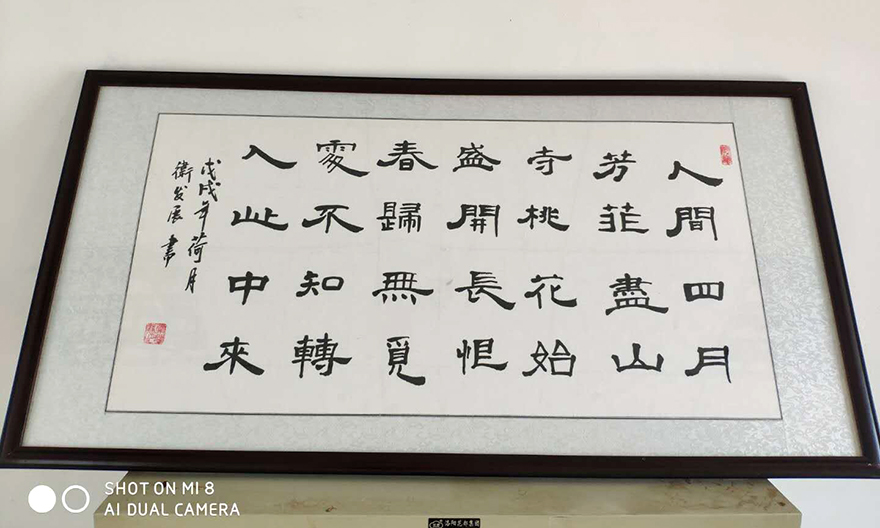 人間四月
芳菲盡山
寺桃花始
盛開長恨
春歸無覓
處不知轉
入此中來
戊戌年荷月
衛发展書
SHOT ON MI 8
AI DUAL CAMERA